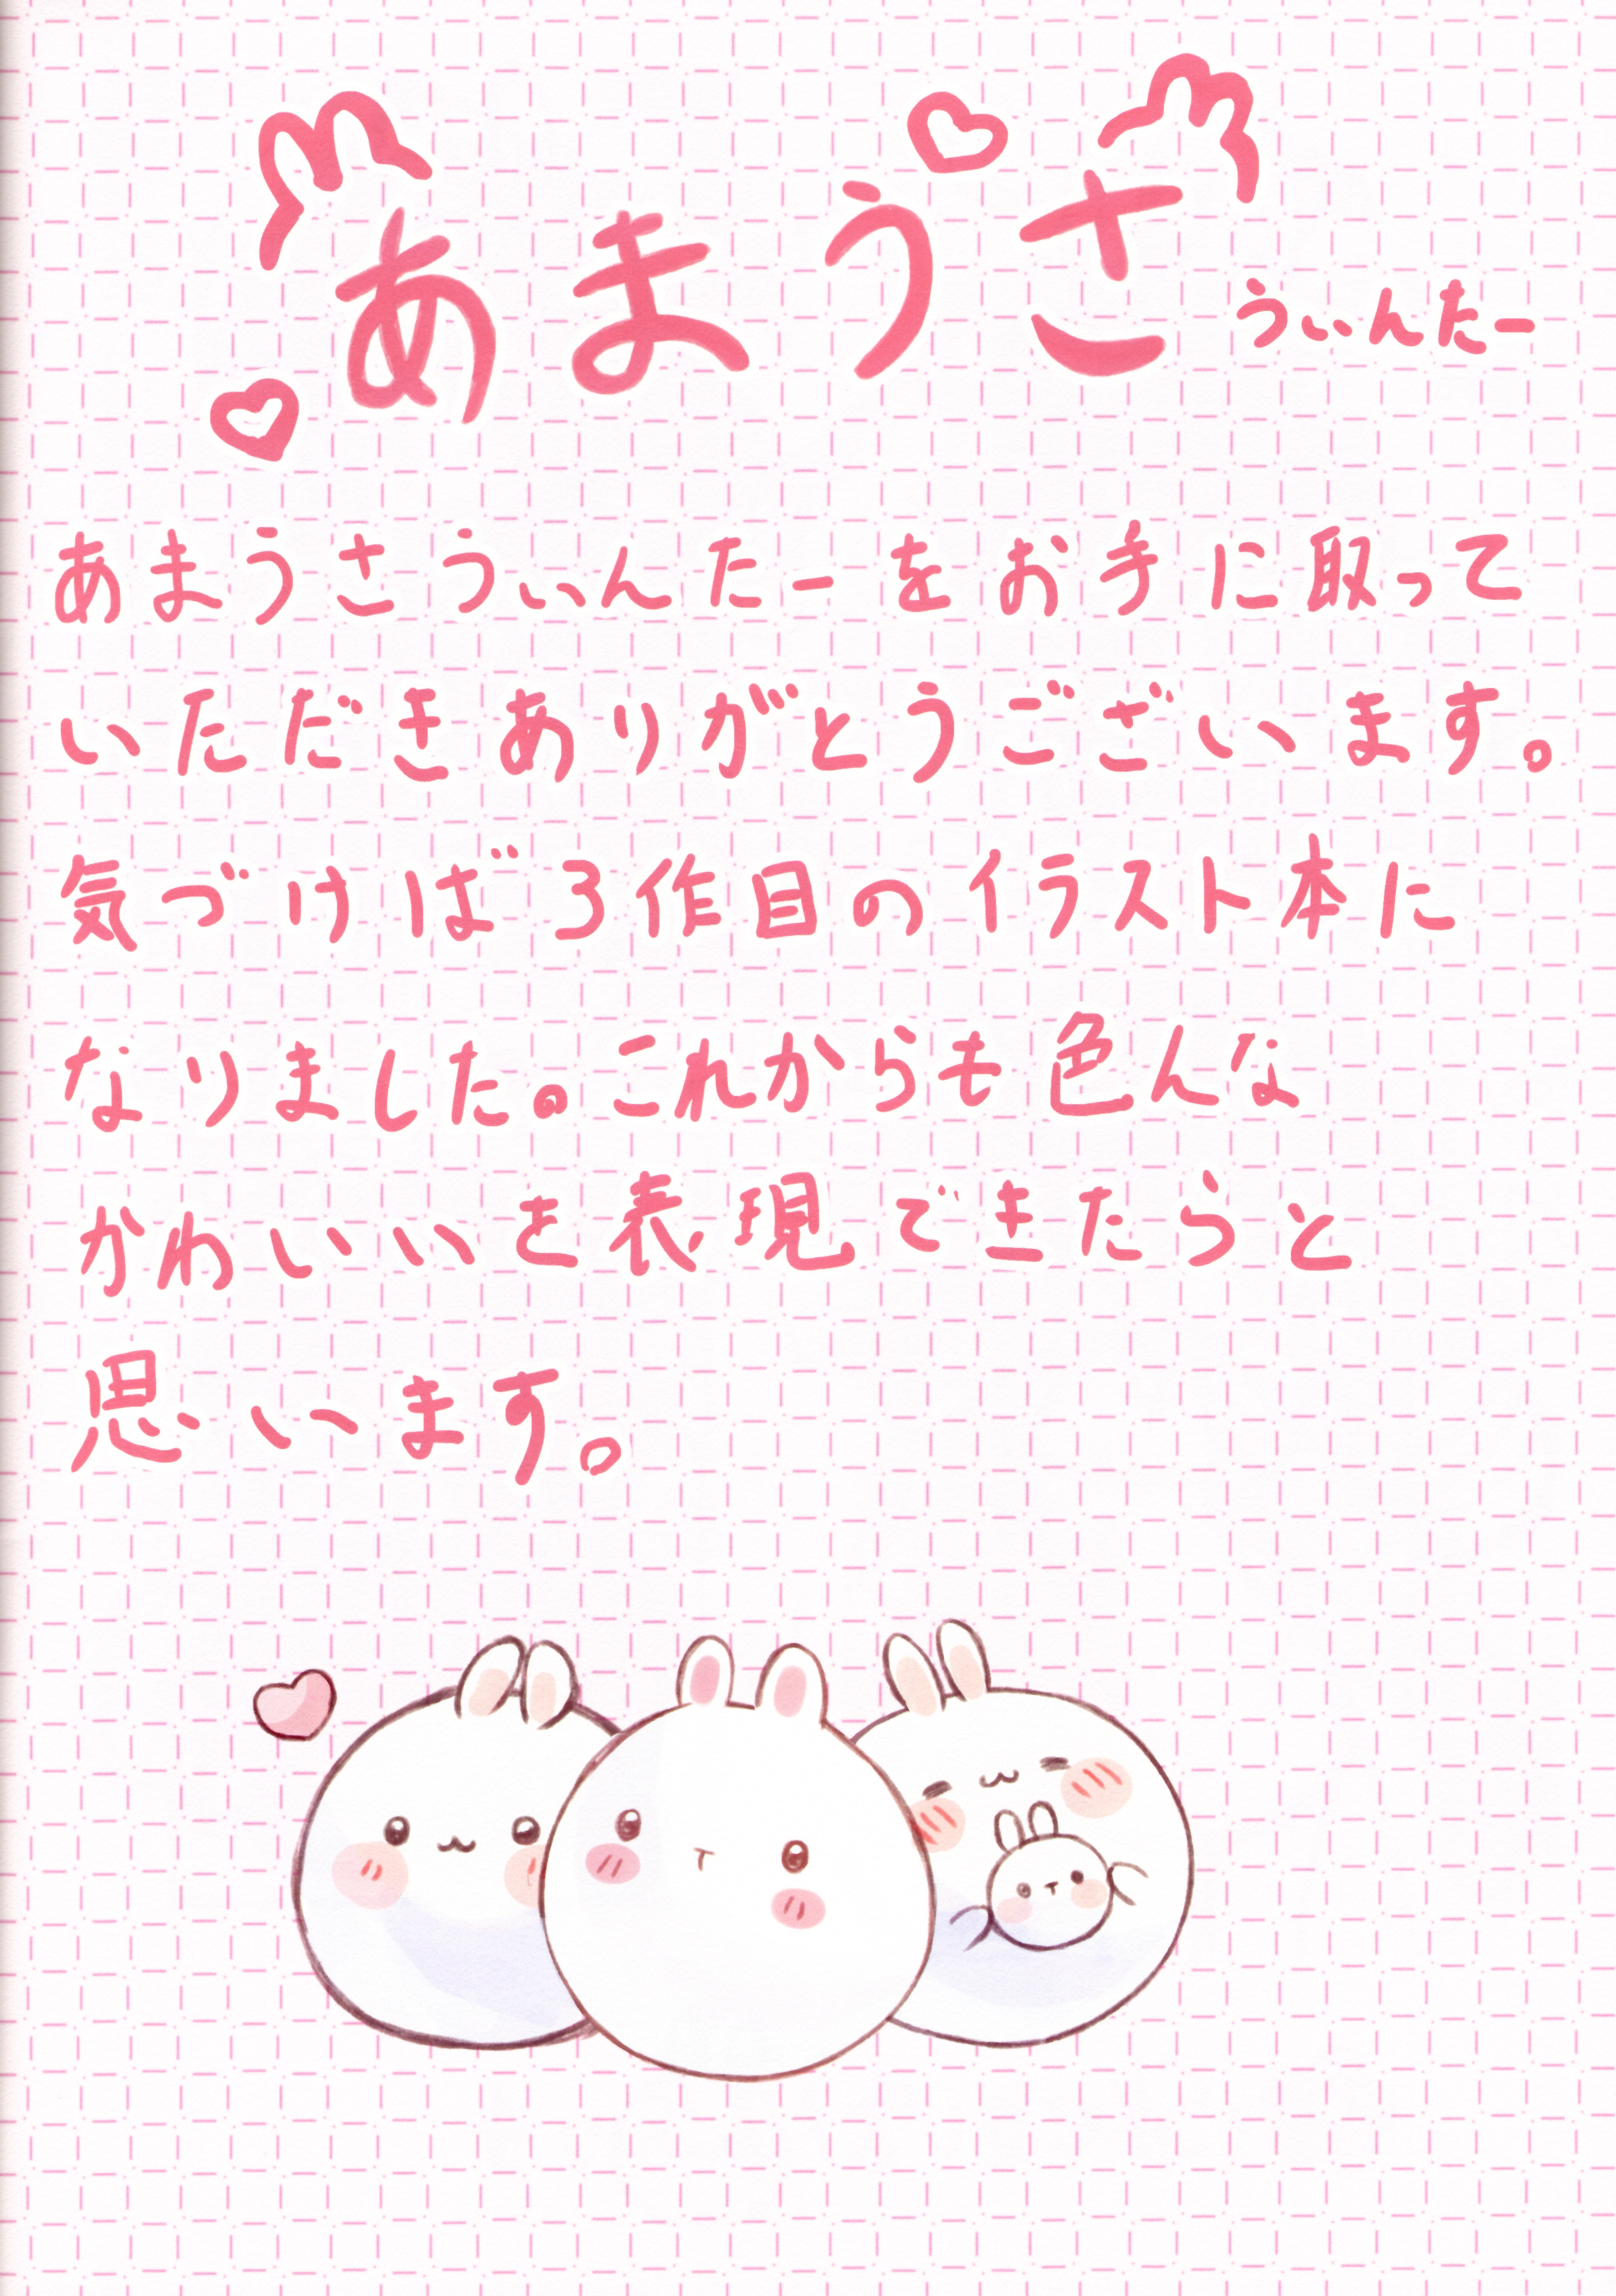 あまうさ うぃんたー
あまうさうぃんたーをお手に取って
いただきありがとうございます。
気づけば3作目のイラスト本に
なりました。これからも色んな
かわいいを表現できたらと
思います。